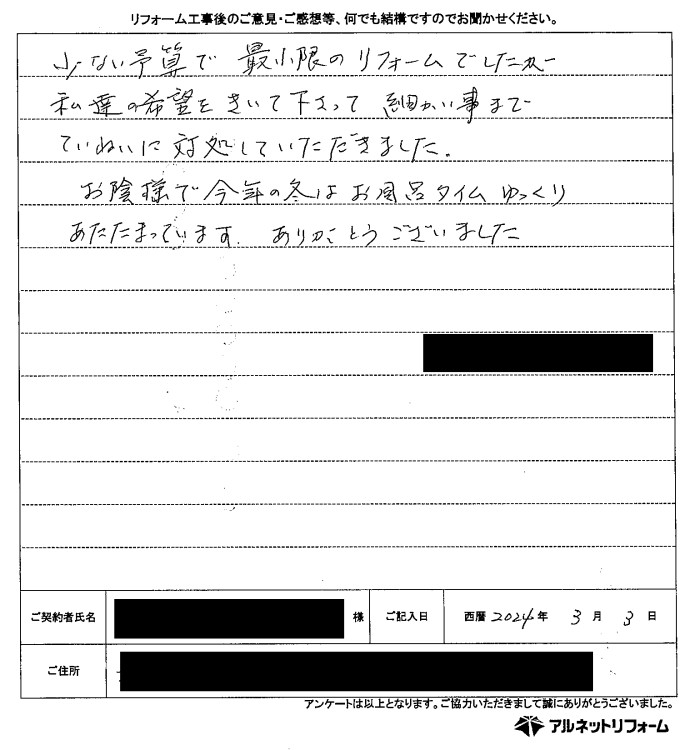 リフォーム工事後のご意見・ご感想等、何でも結構ですのでお聞かせください。
少ない予算で 最小限のリフォームでしたが
私達の希望をきいて下さって 細かい事まで
ていねいに 対処していただきました.
お陰様で今年の冬は お風呂タイム ゆっくり
あたたまっています. ありがとうございました
ご契約者氏名
様
ご記入日
西暦 2024 年 3 月 3 日
ご住所
アンケートは以上となります。ご協力いただきまして誠にありがとうございました。
アルネットリフォーム